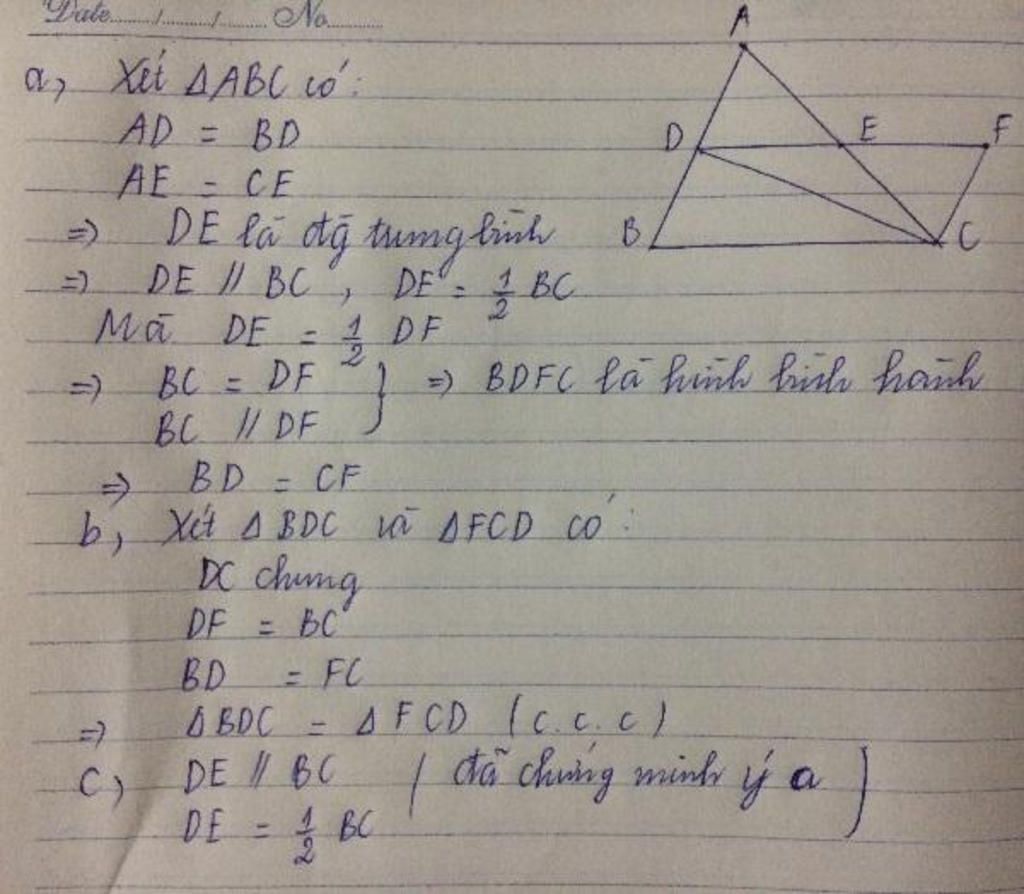 Date....../......../....... No.........
A
a, Xét ΔABC có:
AD = BD
D E F
AE = CE
=> DE là đg̃ trung bình
B C
=> DE // BC , DE = 1/2 BC
Mà DE = 1/2 DF
=> BC = DF } => BDFC là hình bình hành
BC // DF
=> BD = CF
b, Xét Δ BDC và Δ FCD có:
DC chung
DF = BC
BD = FC
=> Δ BDC = Δ FCD (c.c.c)
c, DE // BC ( đã chứng minh ý a )
DE = 1/2 BC